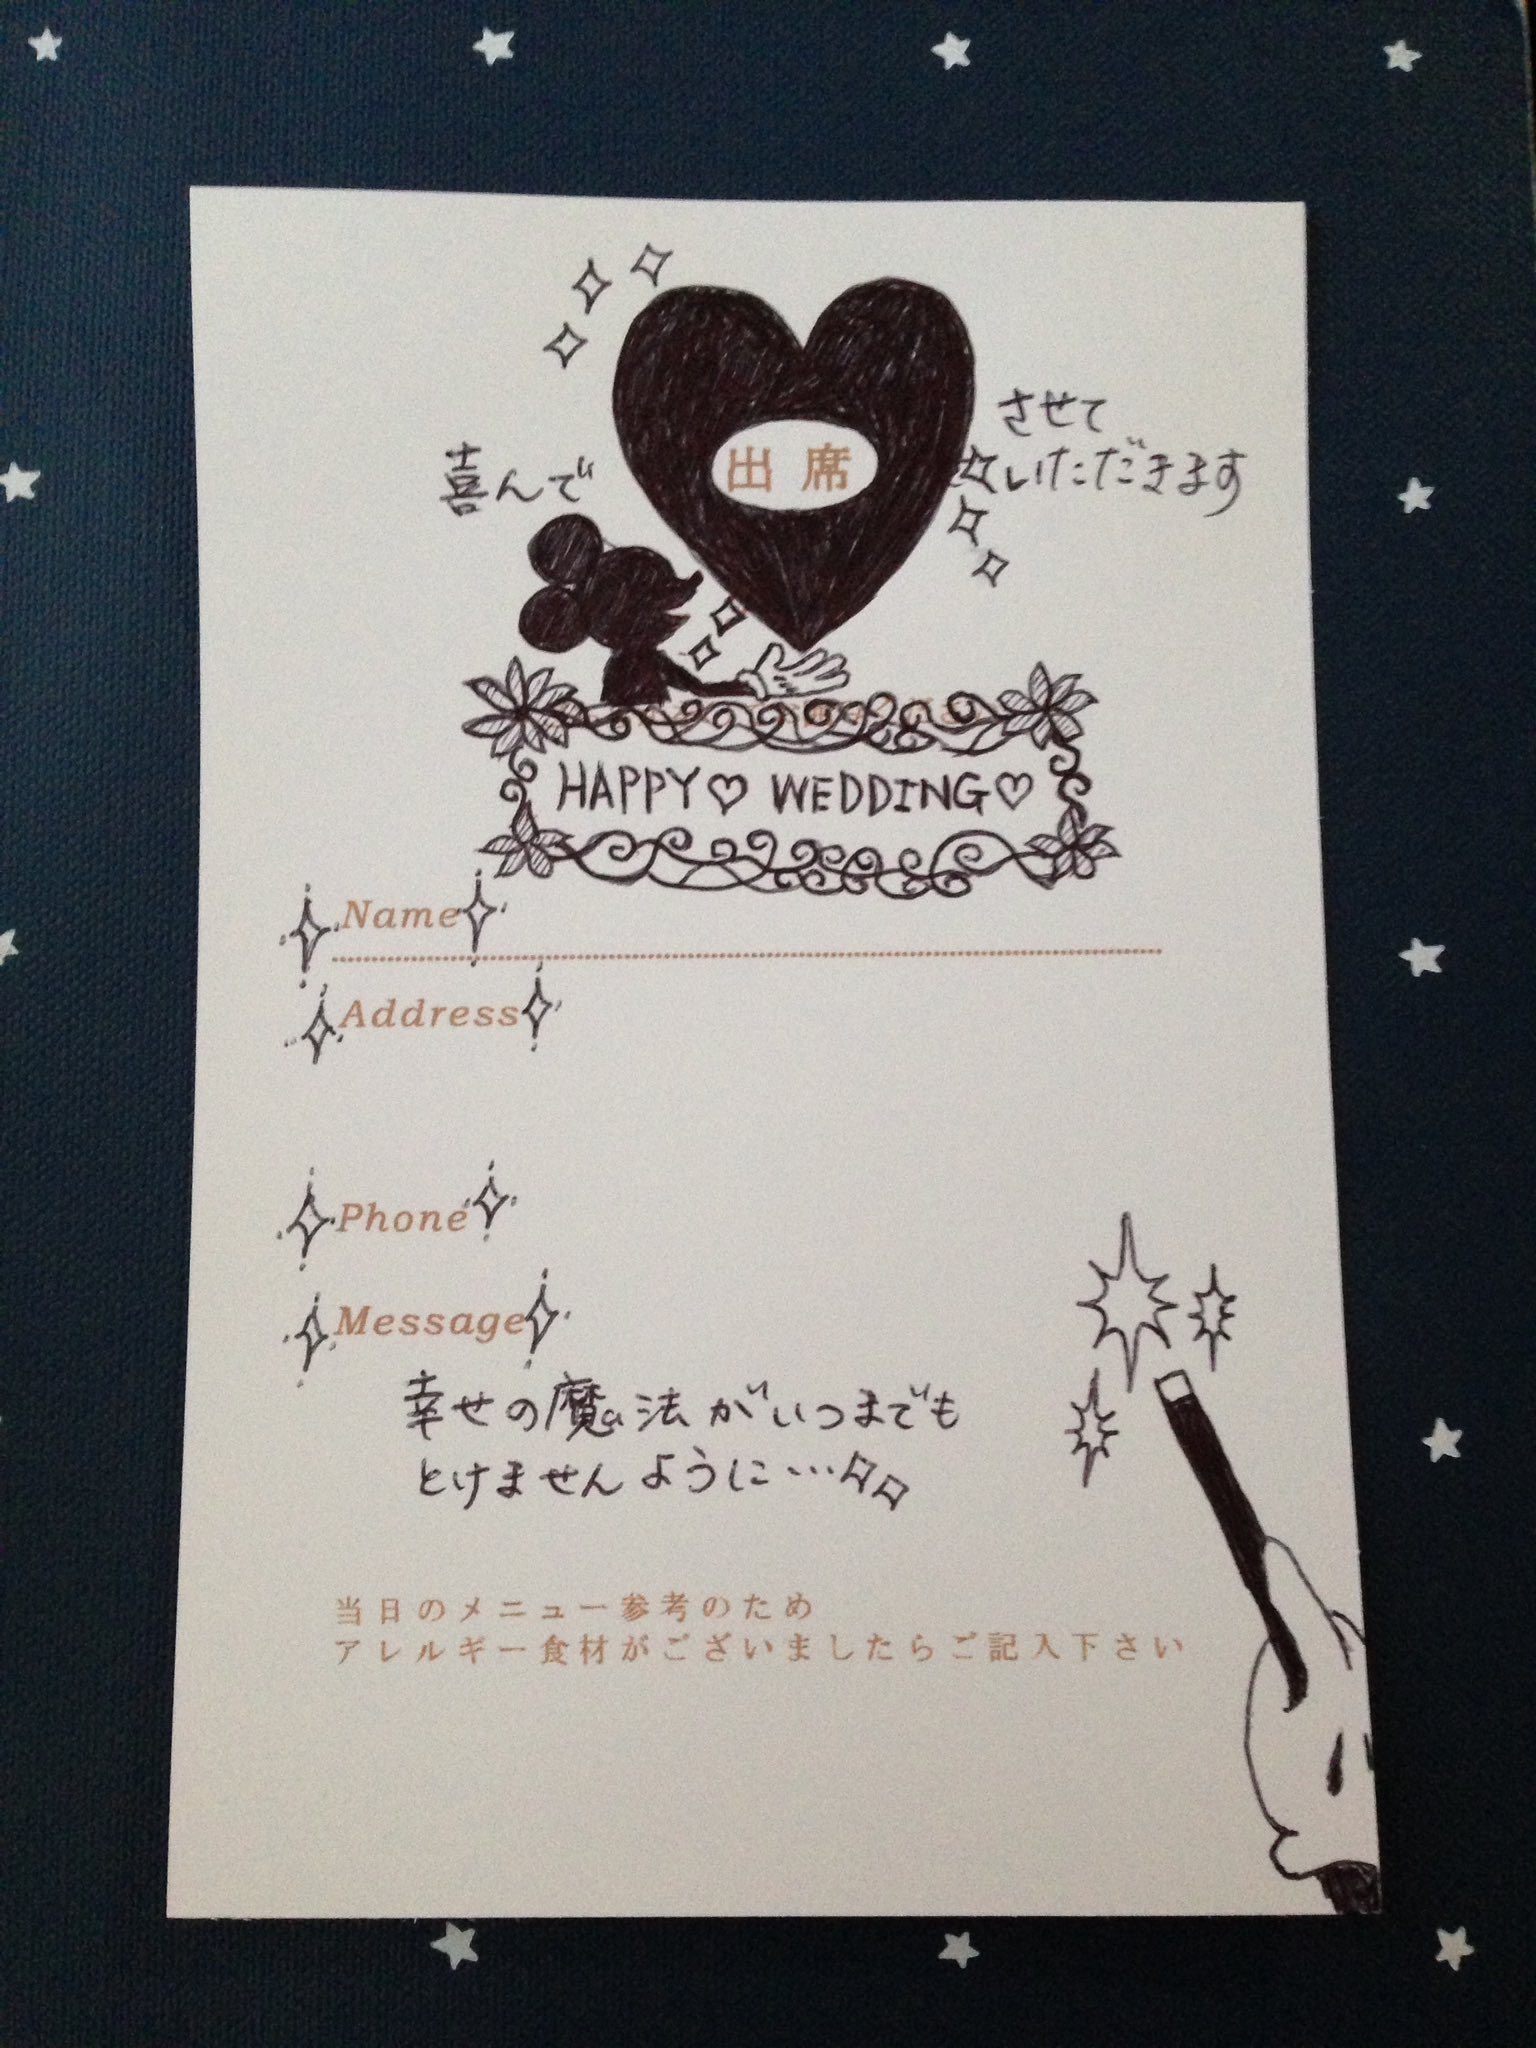 喜んで
出席
させて
いただきます
HAPPY♡ WEDDING♡
Name
Address
Phone
Message
幸せの魔法がいつまでも
とけませんように…
当日のメニュー参考のため
アレルギー食材がございましたらご記入下さい